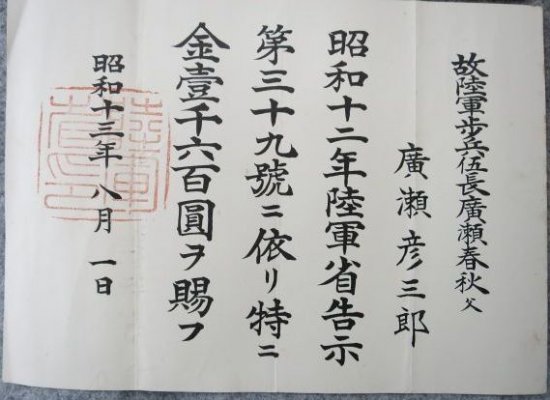 故陸軍歩兵伍長廣瀬春秋父
廣瀬彦三郎
昭和十二年陸軍省告示
第三十九號ニ依リ特ニ
金壹千六百圓ヲ賜フ
昭和十三年八月一日